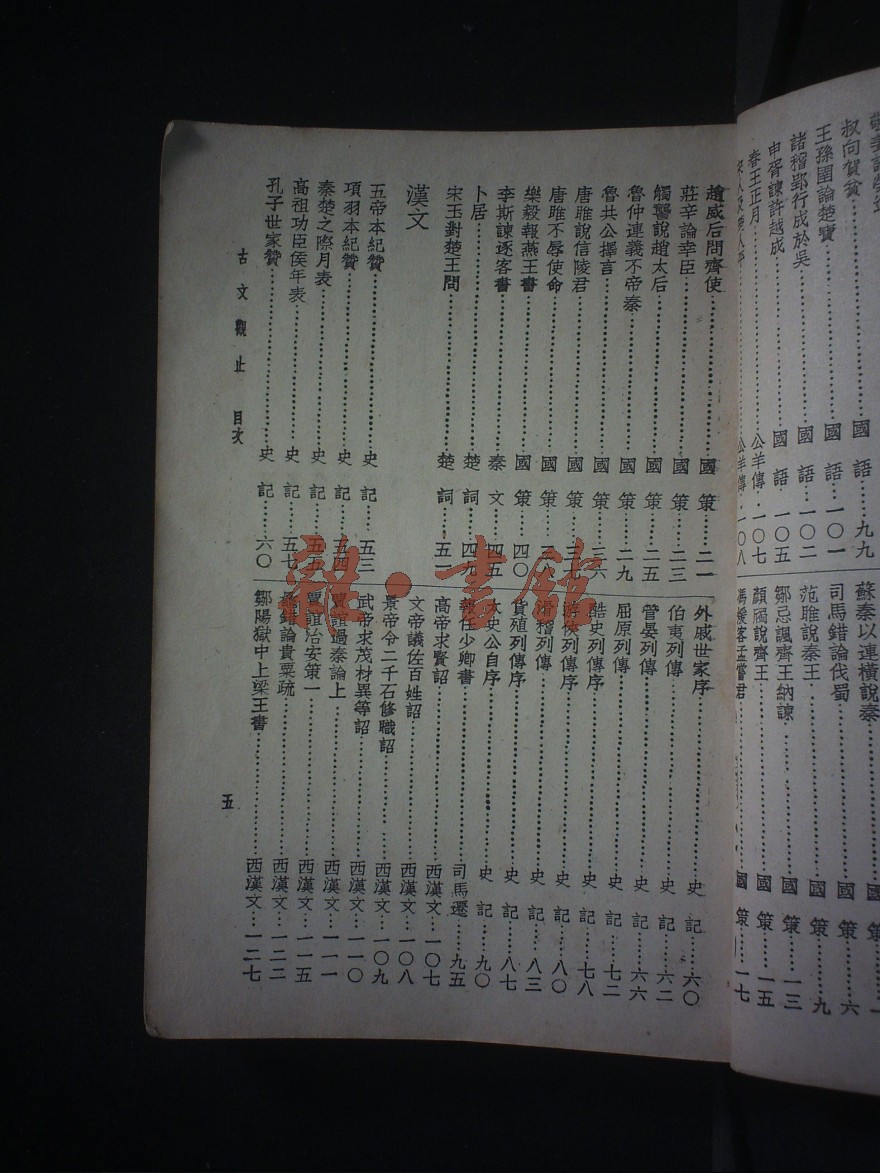 叔向賀貧
王孫圉論楚寶……國語……一〇一
諸稽郢行成於吳……國語……一〇二
申胥諫許越成……國語……一〇五
春王正月……公羊傳……一〇七
公羊傳……一〇八
國語……九九
蘇秦以連橫說秦……國策……一
司馬錯論伐蜀……國策……六
范雎說秦王……國策……九
鄒忌諷齊王納諫……國策……一三
顏斶說齊王……國策……一五
馮煖客孟嘗君……國策……一七
趙威后問齊使……國策……二一
莊辛論幸臣……國策……二三
觸讋說趙太后……國策……二五
魯仲連義不帝秦……國策……二九
魯共公擇言……國策……三六
唐雎說信陵君……國策……三七
唐雎不辱使命……國策……三八
樂毅報燕王書……國策……四〇
李斯諫逐客書……秦文……四五
卜居……楚詞……四九
宋玉對楚王問……楚詞……五一
漢文
五帝本紀贊……史記……五三
項羽本紀贊……史記……五四
秦楚之際月表……史記……五五
高祖功臣侯年表……史記……五七
孔子世家贊……史記……六〇
外戚世家序……史記……六〇
伯夷列傳……史記……六二
管晏列傳……史記……六六
屈原列傳……史記……七二
酷吏列傳序……史記……七八
游俠列傳序……史記……八〇
滑稽列傳……史記……八三
貨殖列傳序……史記……八七
太史公自序……史記……九〇
報任少卿書……司馬遷……九五
高帝求賢詔……西漢文……一〇七
文帝議佐百姓詔……西漢文……一〇八
景帝令二千石修職詔……西漢文……一〇九
武帝求茂材異等詔……西漢文……一一〇
賈誼過秦論上……西漢文……一一一
賈誼治安策一……西漢文……一一五
鼂錯論貴粟疏……西漢文……一二二
鄒陽獄中上梁王書……西漢文……一二七
古文觀止 目次
五
雜·書館